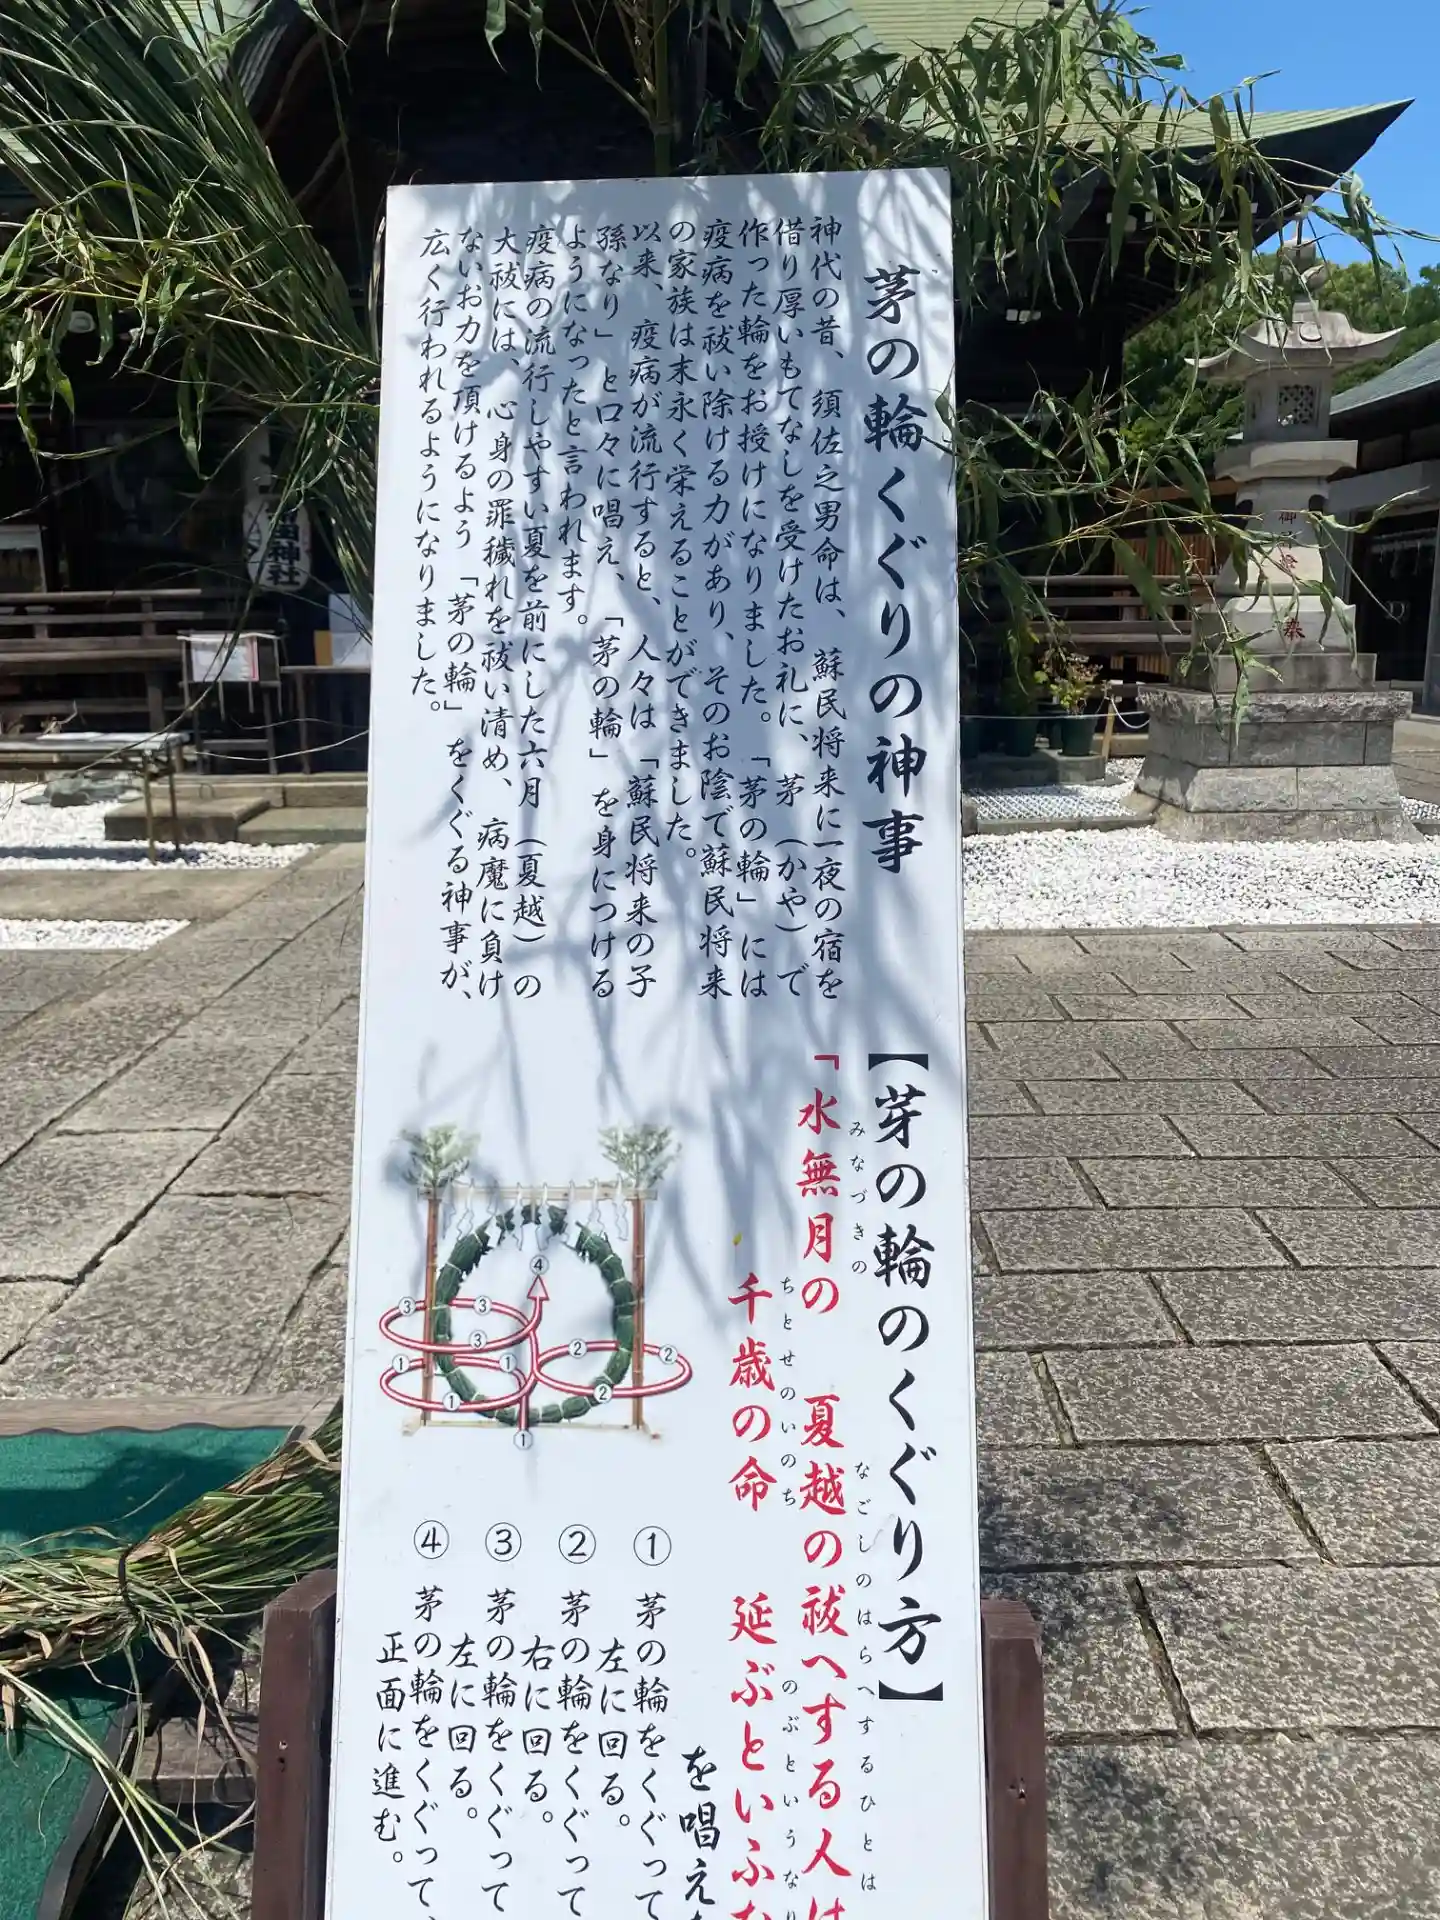 茅の輪くぐりの神事
神代の昔、須佐之男命は、蘇民将来に一夜の宿を
借り厚いもてなしを受けたお礼に、茅(かや)で
作った輪をお授けになりました。「茅の輪」には
疫病を祓い除ける力があり、そのお陰で蘇民将来
の家族は末永く栄えることができました。
以来、疫病が流行すると、人々は「蘇民将来の子
孫なり」と口々に唱え、「茅の輪」を身につける
ようになったと言われます。
疫病の流行しやすい夏を前にした六月(夏越)の
大祓には、心身の罪穢れを祓い清め、病魔に負け
ないお力を頂けるよう「茅の輪」をくぐる神事が、
広く行われるようになりました。
【芽の輪のくぐり方】
みなづきの なごしのはらへするひとは
「水無月の 夏越の祓へする人は
ちとせのいのち のぶというなり
千歳の命 延ぶといふな
を唱え
① 茅の輪をくぐって
左に回る。
② 茅の輪をくぐって
右に回る。
③ 茅の輪をくぐって
左に回る。
④ 茅の輪をくぐって、
正面に進む。
④
③ ③
③
① ①
①
② ②
②
①
神社
御
奉